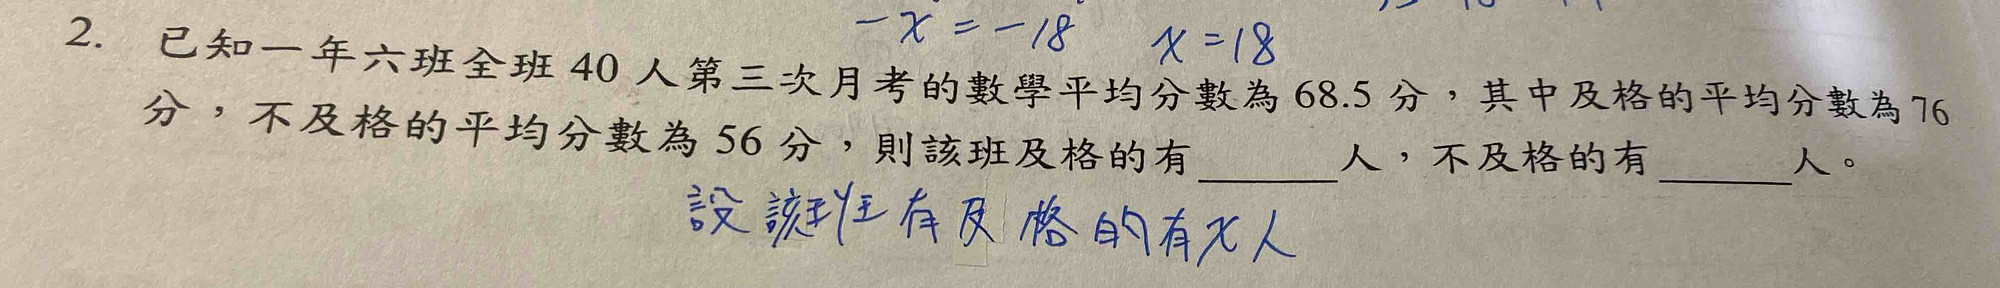 -x=-18 x=18
2. 已知一年六班全班 40 人第三次月考的數學平均分數為 68.5 分，其中及格的平均分數為 76
分，不及格的平均分數為 56 分，則該班及格的有______人，不及格的有______人。
設該班有及格的有x人